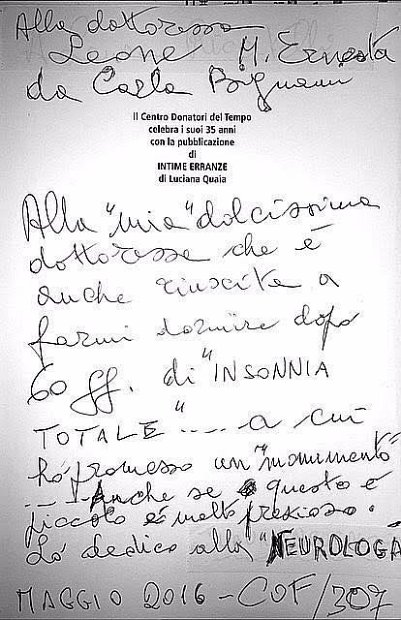 Alla dottoressa
Leone M. Ernesta
da Carla Bignami
Il Centro Donatori del Tempo
celebra i suoi 35 anni
con la pubblicazione
di
INTIME ERRANZE
di Luciana Quaia
Alla "mia" dolcissima
dottoressa che è
anche riuscita a
farmi dormire dopo
60 gg. di "INSONNIA
TOTALE" .... a cui
hó promesso un "monumento"
.... Anche se questo è
piccolo é molto prezioso.
Ló dedico alla "NEUROLOGA
MAGGIO 2016 - COF/307